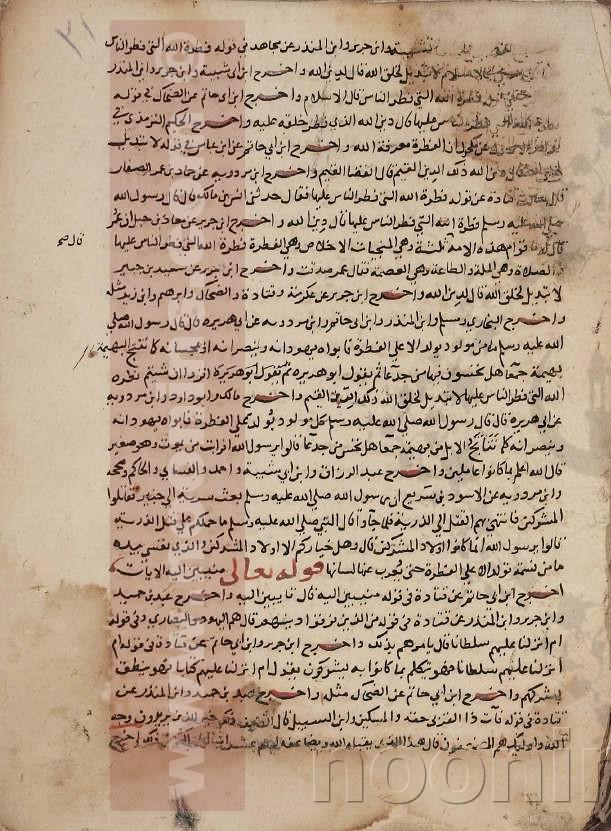 شيبة وابن جرير وابن المنذر عن مجاهد في قوله فطرة الله التي فطر الناس
لا تبديل لخلق الله قال لدين الله واخرج ابن ابي شيبة وابن جرير وابن المنذر
فطرة الله التي فطر الناس قال الاسلام واخرج ابن ابي حاتم عن الضحاك في قوله
عليها قال دين الله الذي فطر خلقه عليه واخرج الحكيم الترمذي في
عن ان الفطرة معرفة الله واخرج ابن ابي حاتم عن ابن عباس في قوله لا تبديل
الله ذلك الدين القيم قال القضا القيم واخرج ابن مردويه عن حماد بن عمر الصفار
قتادة عن قوله فطرة الله التي فطر الناس عليها فقال حدثني انس بن مالك قال قال رسول الله
صلى الله عليه وسلم فطرة الله التي فطر الناس عليها قال دين الله واخرج ابن جرير عن معاذ بن جبل ان عمر
قال له ما قوام هذه الامة قال ثلثة وهي المنجيات الاخلاص وهي الفطرة فطرة الله التي فطر الناس عليها
والصلاة وهي الملة والطاعة وهي العصمة فقال عمر صدقت واخرج ابن جرير عن سعيد بن جبير
لا تبديل لخلق الله قال لدين الله واخرج ابن جرير عن عكرمة وقتادة والضحاك وابراهيم وابن زيد مثله
واخرج البخاري ومسلم وابن المنذر وابن ابي حاتم وابن مردويه عن ابي هريرة قال قال رسول الله صلى
الله عليه وسلم ما من مولود يولد الا على الفطرة فابواه يهودانه وينصرانه او يمجسانه كما تنتج البهيمة
بهيمة جمعا هل تحسون فيها من جدعا ثم يقول ابو هريرة اقرؤا ان شيتم فطرة
الله التي فطر الناس عليها لا تبديل لخلق الله ذلك الدين القيم واخرج مالك وابو داود وابن مردويه
عن ابي هريرة قال قال رسول الله صلى الله عليه وسلم كل مولود يولد على الفطرة فابواه يهودانه
وينصرانه كما تناتج الابل من بهيمة جمعا هل تحس من جدعا قالوا يرسول الله افرايت من يموت وهو صغير
قال الله اعلم بما كانوا عاملين واخرج عبد الرزاق وابن ابي شيبة واحمد والنساي والحاكم وصححه
وابن مردويه عن الاسود بن سريع ان رسول الله صلى الله عليه وسلم بعث سرية الى خيبر فقاتلوا
المشركين فانتهى بهم القتل الى الذرية فلما جاوا قال النبي صلى الله عليه وسلم ما حملكم على قتل الذرية
قالوا يرسول الله انما كانوا اولاد المشركين قال وهل خياركم الا اولاد المشركين والذي نفسي بيده
ما من نسمة تولد الا على الفطرة حتى يعرب عنها لسانها قوله تعالى منيبين اليه الايات
اخرج ابن ابي حاتم عن قتادة في قوله منيبين اليه قال تايبين اليه واخرج عبد بن حميد
وابن جرير وابن المنذر عن قتادة في قوله من الذين فرقوا دينهم قال هم اليهود والنصارى وفي قوله
ام انزلنا عليهم سلطانا قال يامرهم بذلك واخرج ابن جرير وابن ابي حاتم عن قتادة في قوله ام
انزلنا عليهم سلطانا فهو يتكلم بما كانوا به يشركون يقول ام انزلنا عليهم كتابا فهو ينطق
بشركهم واخرج ابن ابي حاتم عن الضحاك مثله واخرج عبد بن حميد وابن المنذر عن
قتادة في قوله فات ذا القربى حقه والمسكين وابن السبيل قال الضيف ذلك خير للذين يريدون وجه
الله واوليك هم المضعفون قال هذا الذي يقبله الله ويضاعفه لهم عشر